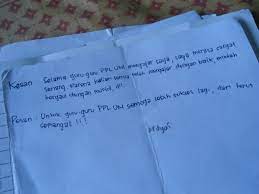 Kesan : Selama guru-guru PPL UM mengajar saya, saya merasa sangat
senang. Karena kalian semua telah mengajar dengan baik, mudah
bergaul dengan murid, dll.
Pesan : Untuk guru-guru PPL UM semoga lebih sukses lagi, dan terus
semangat !!!